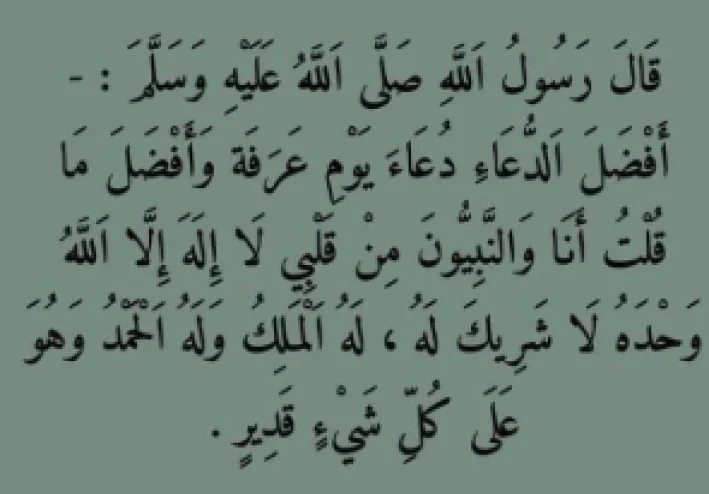 قَالَ رَسُولُ اَللَّهِ صَلَّى اَللَّهُ عَلَيْهِ وَسَلَّمَ : -
أَفْضَلَ اَلدُّعَاءِ دُعَاءَ يَوْمِ عَرَفَة وَأَفْضَلَ مَا
قُلْتُ أَنَا وَالنَّبِيُّونَ مِنْ قَلْبِي لَا إِلَهَ إِلَّا اَللَّهُ
وَحْدَهُ لَا شَرِيكَ لَهُ ، لَهُ اَلْمَلِكُ وَلَهُ اَلْحَمْدُ وَهُوَ
عَلَى كُلِّ شَيْءٍ قَدِيرٍ .